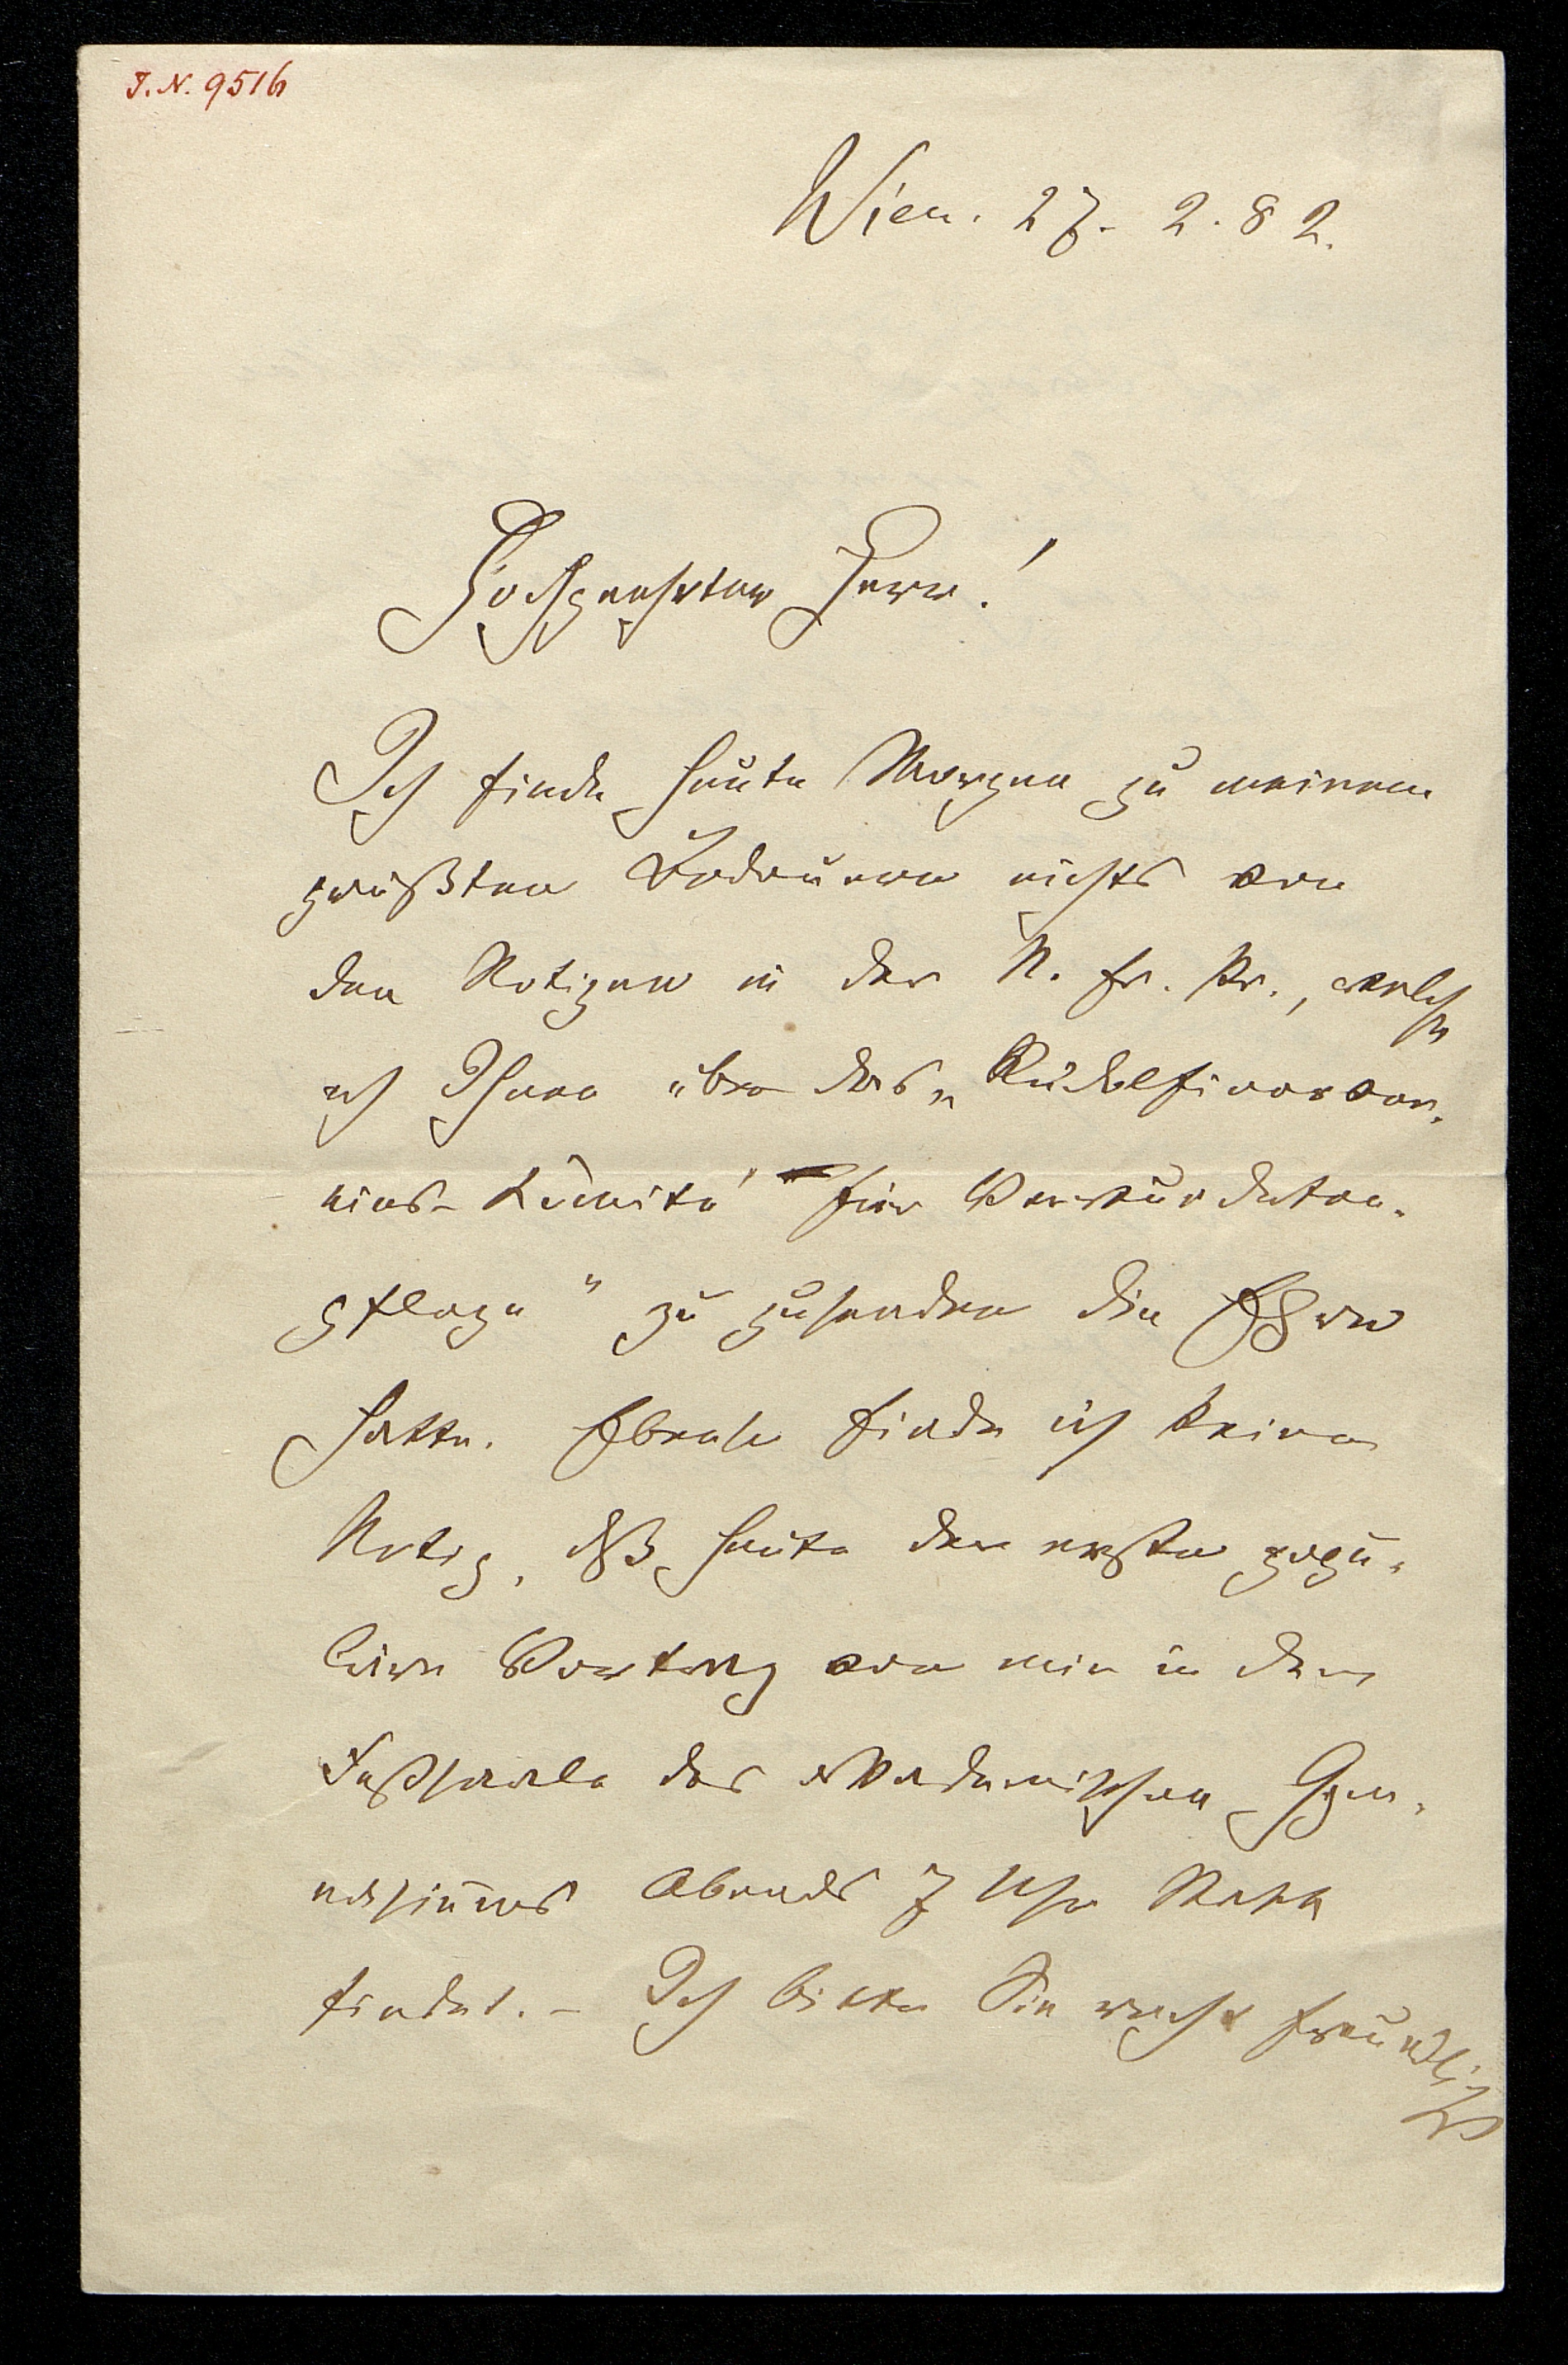 I. N. 9516
Wien. 27. 2. 82.
Hochgeehrter Herr!
Ich finde heute Morgen zu meinem
größten Bedauern nichts von
den Notizen in der N. fr. Pr., welche
ich Ihnen über das „Rudolfinerver-
eins-Comité für Verwundeten-
pflege" zu zusenden die Ehre
hatte. Ebenso finde ich keine
Notiz, daß heute der erste popu-
läre Vortrag von mir in dem
Festsaale des akademischen Gym-
nasiums Abends 7 Uhr Statt
findet. – Ich bitte Sie recht freundlich